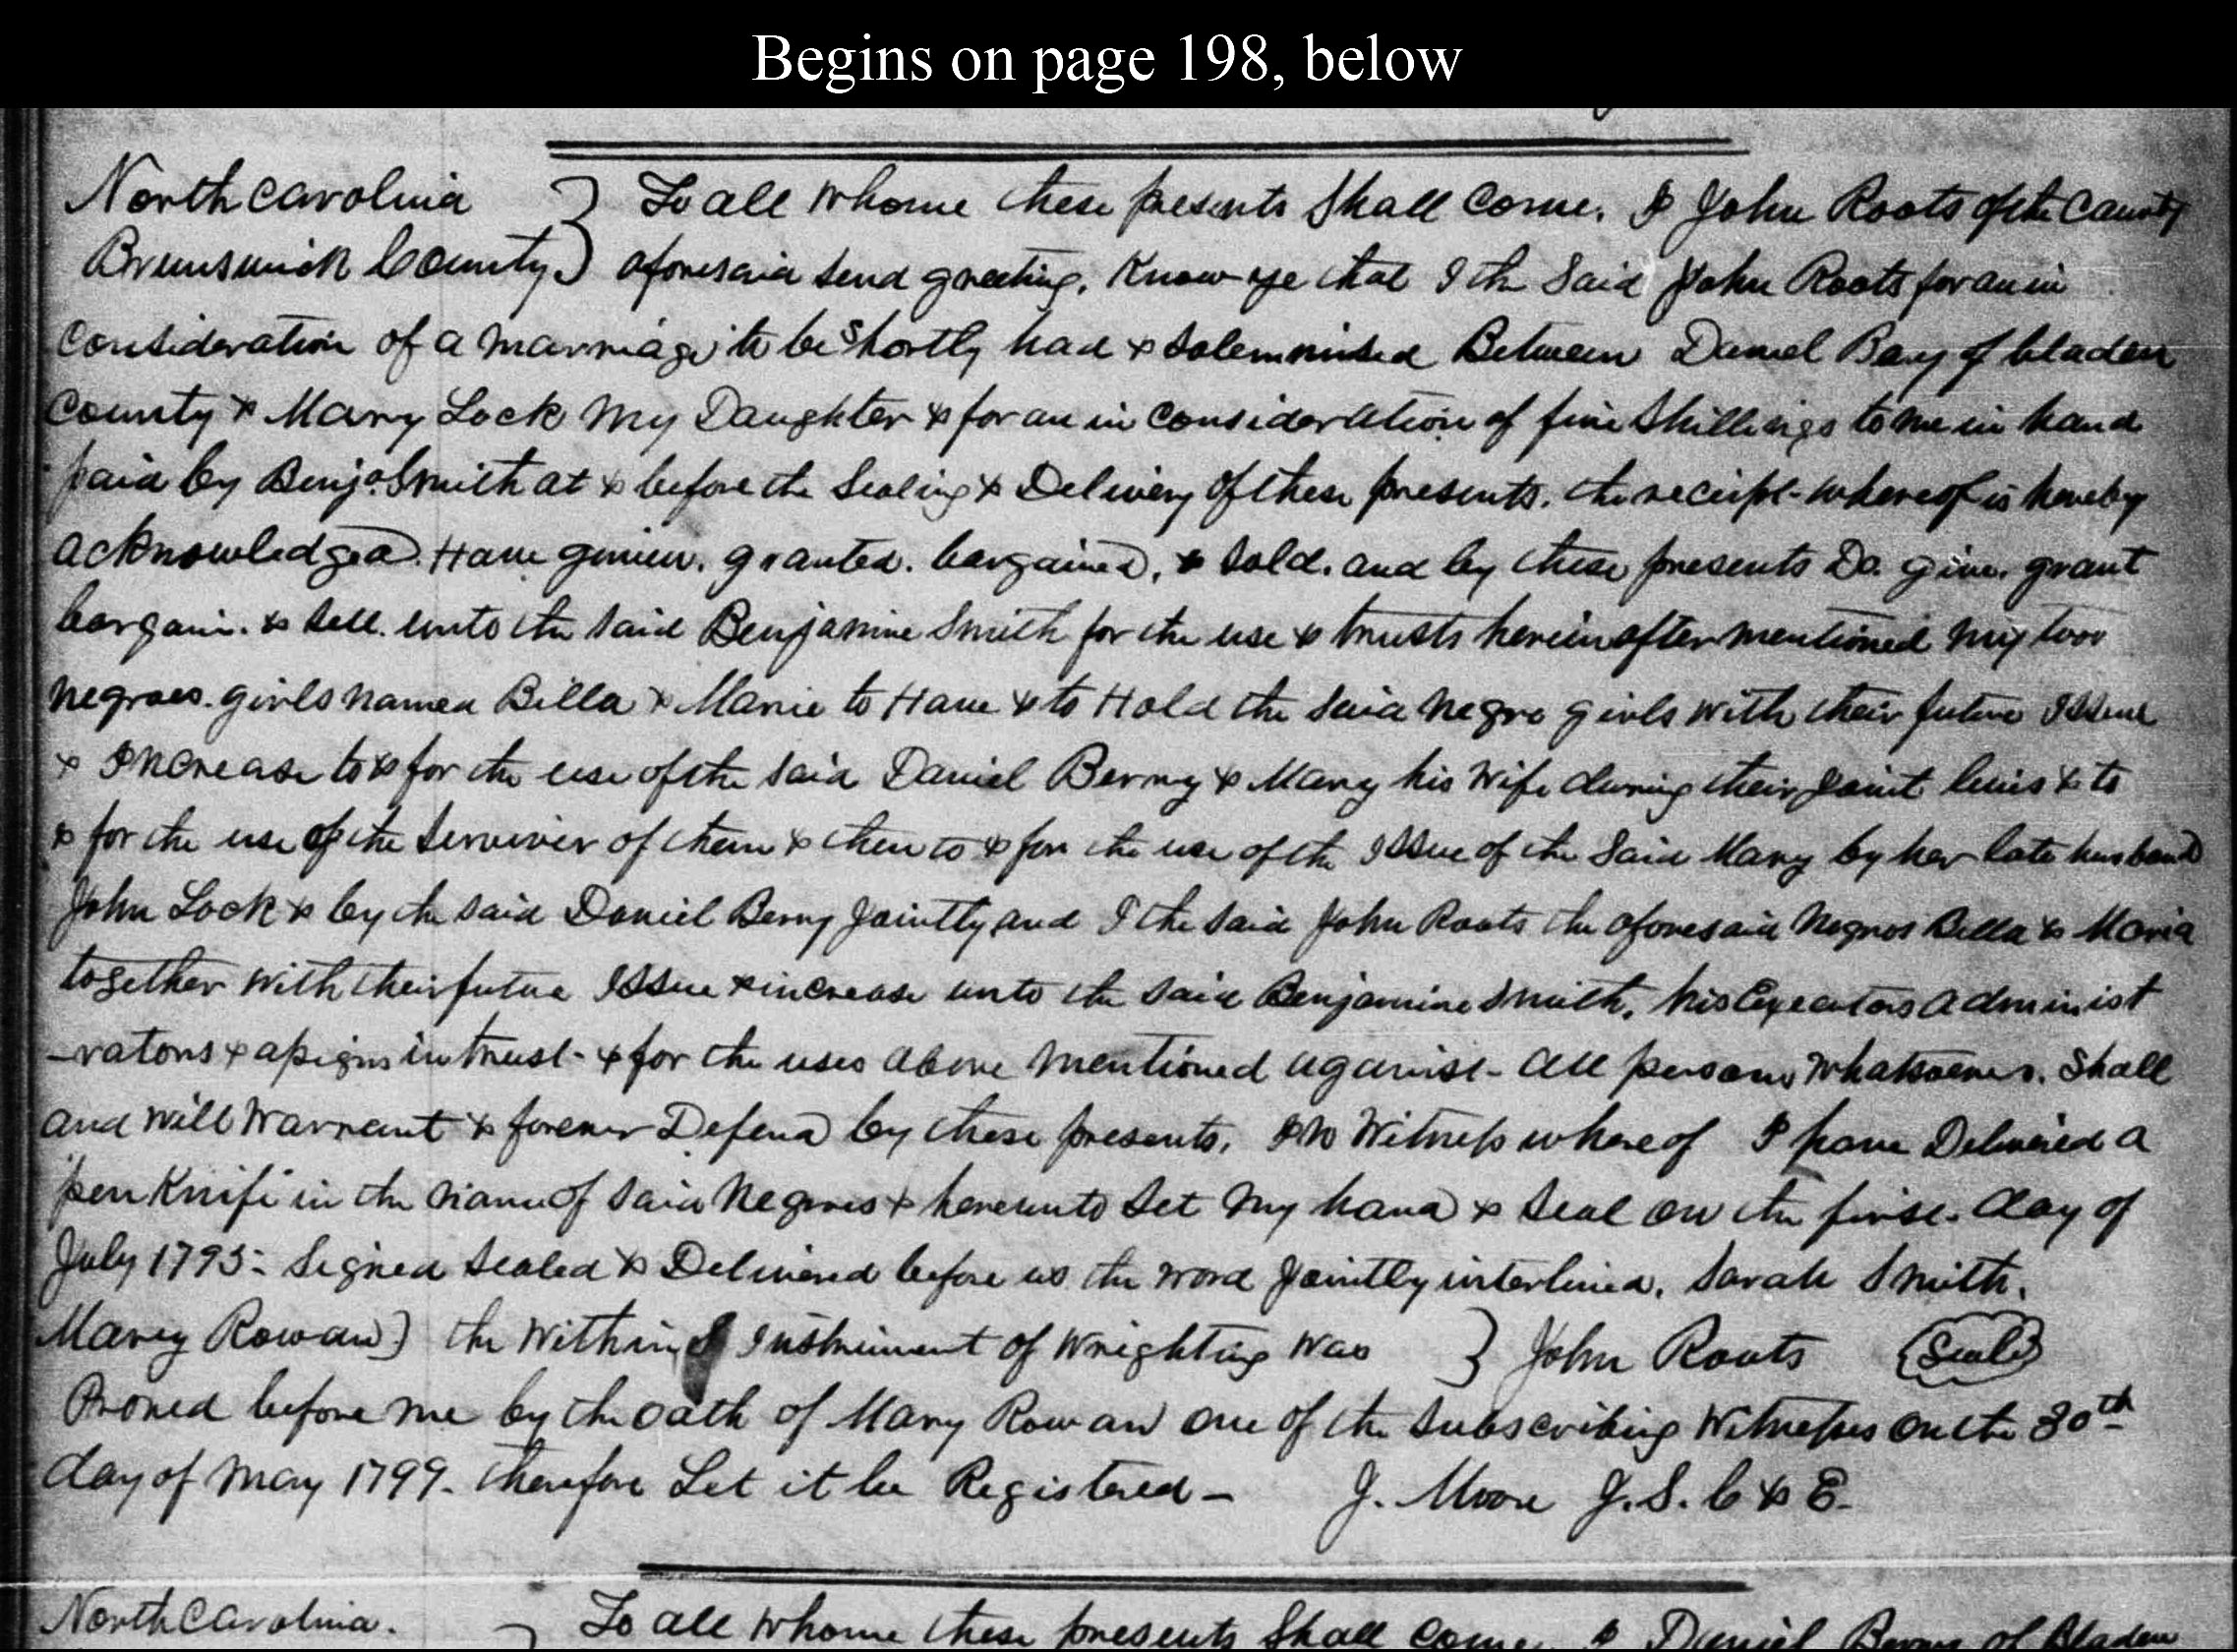 Begins on page 198, below
North Carolina } To all whome these presents Shall Come. I John Roots of the County
Brunswick County } aforesaid send greeting. Know ye that I the Said John Roots for an in
Consideration of a marriage to be shortly had & solemnised Between Daniel Bary of bladen
County & Mary Lock My Daughter & for an in Consideration of five Shillings to me in hand
paid by Benja. Smith at & before the Sealing & Delivery Of these presents. the receipt whereof is hereby
acknowledged. Have given. granted. bargained, & sold. and by these presents Do. give. grant
bargain. & sell. unto the said Benjamine Smith for the use & trusts herein after mentioned my two
negroes. girls named Billa & Marie to Have & to Hold the Said Negro girls with their future Issue
& Increase to & for the use of the said Daniel Berry & Mary his Wife during their Joint lives & to
& for the use of the Serviver of them & then to & for the use of the Issue of the Said Mary by her late husband
John Lock & by the said Daniel Berry Jointly and I the said John Roots the aforesaid Negros Bella & Maria
together with their future Issue & increase unto the said Benjamine Smith, his Executors administ
-rators & assigns in trust - & for the uses above mentioned against - all persons whatsoever. Shall
and will Warrant & forever Defend by these presents. In Witness whereof I have Delivered a
pen Knife in the name of said Negroes & hereunto Set my hand & Seal on the first. day of
July 1795 - Signed Sealed & Delivered before us the word Jointly interlined. Sarah Smith.
Mary Rowan } the Within Instrument of Wrighting was } John Roots (Seal)
Proved before me by the oath of Mary Rowan one of the Subscribing Witnesses on the 30th
day of May 1799. Therefore Let it be Registered - J. Moore J. S. C & E -
North Carolina. To all whome these presents Shall Come I Daniel Berry of Bladen